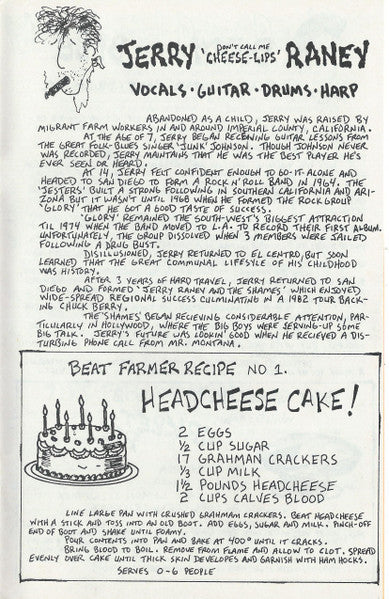 JERRY DON'T CALL ME 'CHEESE-LIPS' RANEY
VOCALS · GUITAR · DRUMS · HARP
ABANDONED AS A CHILD, JERRY WAS RAISED BY
MIGRANT FARM WORKERS IN AND AROUND IMPERIAL COUNTY, CALIFORNIA.
AT THE AGE OF 7, JERRY BEGAN RECEIVING GUITAR LESSONS FROM
THE GREAT FOLK-BLUES SINGER 'JUNK' JOHNSON. THOUGH JOHNSON NEVER
WAS RECORDED, JERRY MAINTAINS THAT HE WAS THE BEST PLAYER HE'S
EVER SEEN OR HEARD.
AT 14, JERRY FELT CONFIDENT ENOUGH TO GO-IT-ALONE AND
HEADED TO SAN DIEGO TO FORM A ROCK N' ROLL BAND IN 1964. THE
'JESTERS' BUILT A STRONG FOLLOWING IN SOUTHERN CALIFORNIA AND ARI-
ZONA BUT IT WASN'T UNTIL 1968 WHEN HE FORMED THE ROCK GROUP
'GLORY' THAT HE GOT A GOOD TASTE OF SUCCESS.
'GLORY' REMAINED THE SOUTH-WEST'S BIGGEST ATTRACTION
TIL 1974 WHEN THE BAND MOVED TO L.A. TO RECORD THEIR FIRST ALBUM.
UNFORTUNATELY, THE GROUP DISSOLVED WHEN 3 MEMBERS WERE JAILED
FOLLOWING A DRUG BUST.
DISILLUSIONED, JERRY RETURNED TO EL CENTRO, BUT SOON
LEARNED THAT THE GREAT COMMUNAL LIFESYLE OF HIS CHILDHOOD
WAS HISTORY.
AFTER 3 YEARS OF HARD TRAVEL, JERRY RETURNED TO SAN
DIEGO AND FORMED 'JERRY RANEY AND THE SHAMES' WHICH ENJOYED
WIDE-SPREAD REGIONAL SUCCESS CULMINATING IN A 1982 TOUR BACK-
ING CHUCK BERRY.
THE 'SHAMES' BEGAN RECIEVING CONSIDERABLE ATTENTION, PAR-
TICULARLY IN HOLLYWOOD, WHERE THE BIG BOYS WERE SERVING-UP SOME
BIG TALK. JERRY'S FUTURE WAS LOOKIN' GOOD WHEN HE RECIEVED A DIS-
TURBING PHONE CALL FROM MR. MONTANA.
BEAT FARMER RECIPE NO 1.
HEADCHEESE CAKE!
2 EGGS
½ CUP SUGAR
17 GRAHMAN CRACKERS
⅓ CUP MILK
1½ POUNDS HEADCHEESE
2 CUPS CALVES BLOOD
LINE LARGE PAN WITH CRUSHED GRAHMAM CRACKERS. BEAT HEADCHEESE
WITH A STICK AND TOSS INTO AN OLD BOOT. ADD EGGS, SUGAR AND MILK. PINCH-OFF
END OF BOOT AND SHAKE UNTIL FOAMY.
POUR CONTENTS INTO PAN AND BAKE AT 400° UNTIL IT CRACKS.
BRING BLOOD TO BOIL. REMOVE FROM FLAME AND ALLOW TO CLOT. SPREAD
EVENLY OVER CAKE UNTIL THICK SKIN DEVELOPES AND GARNISH WITH HAM HOCKS.
SERVES 0-6 PEOPLE